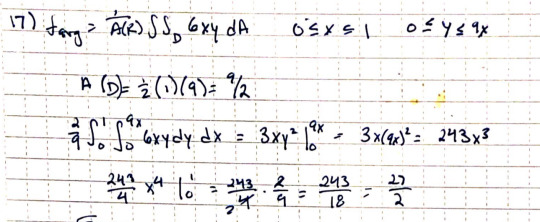 17) f avg = 1/A(R) ∫∫_D 6xy dA 0 ≤ x ≤ 1 0 ≤ y ≤ 9x
A (D) = 1/2 (1)(9) = 9/2
2/9 ∫₀¹ ∫₀⁹ˣ 6xy dy dx = 3xy² |₀⁹ˣ = 3x(9x)² = 243x³
243/4 x⁴ |₀¹ = 243/4 · 2/9 = 243/18 = 27/2